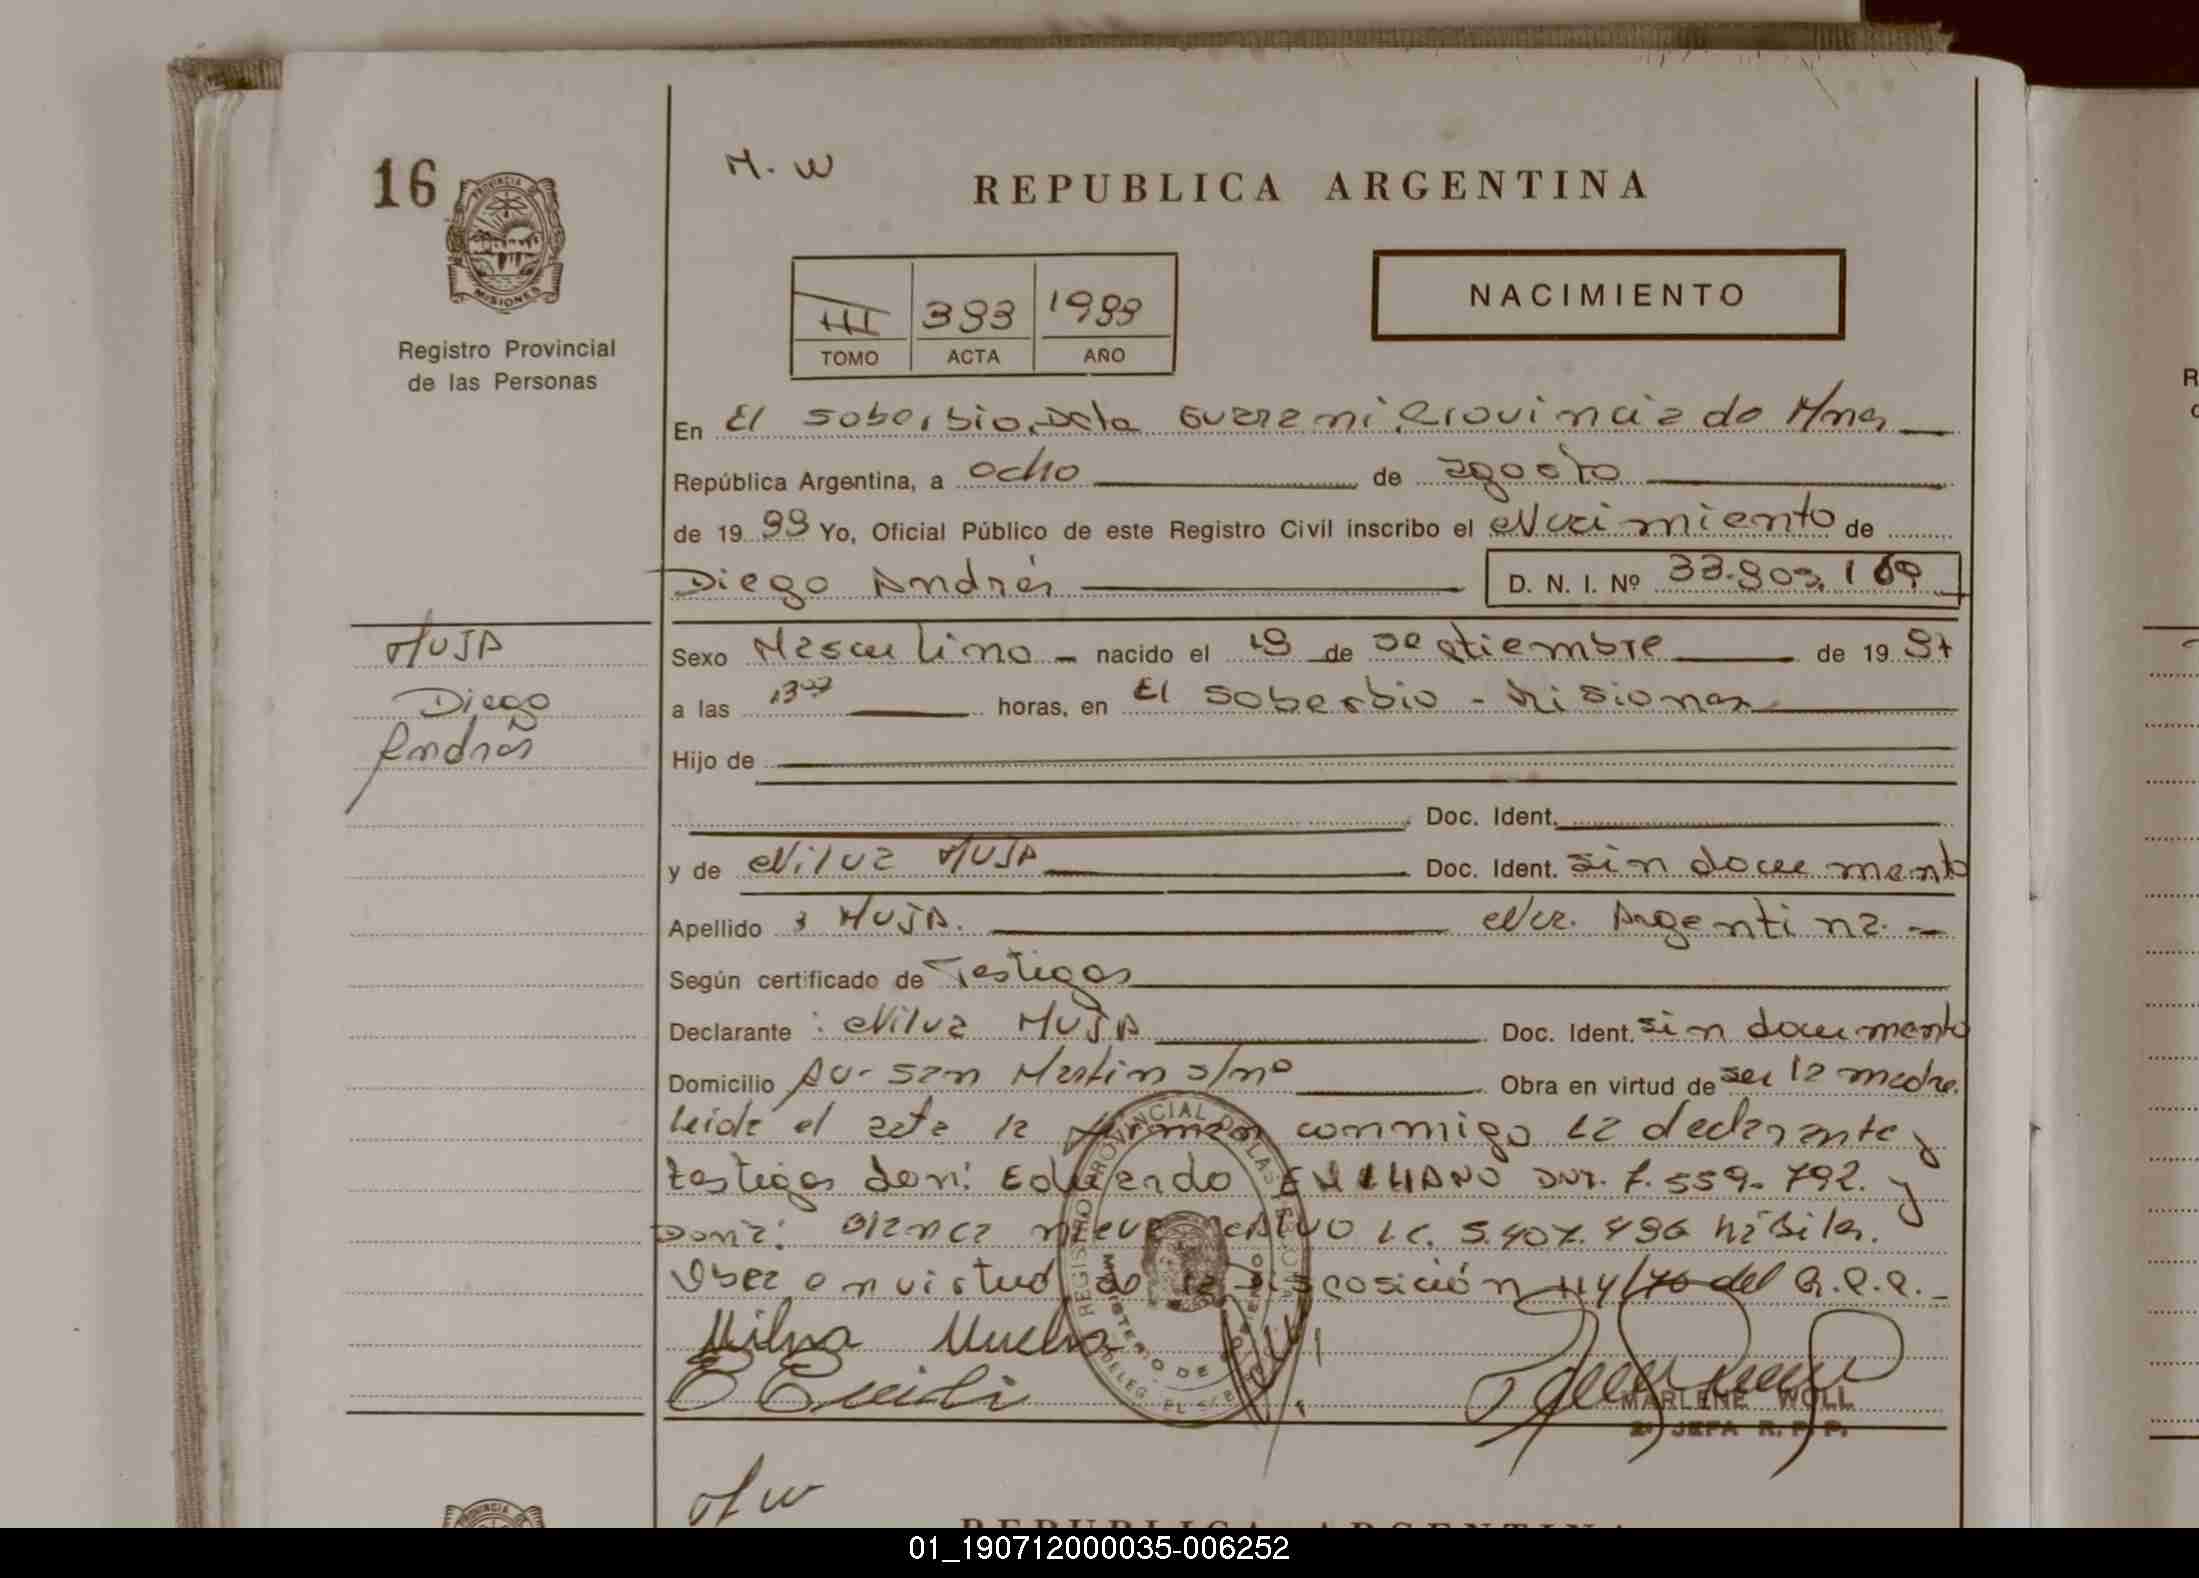 16
M. W
REPUBLICA ARGENTINA
PROVINCIA DE
MISIONES
Registro Provincial
de las Personas
III 393 1999
TOMO ACTA AÑO
NACIMIENTO
En El Soberbio, Dpto Guarani, Provincia de Mnes
República Argentina, a ocho de agosto
de 19 99 Yo, Oficial Público de este Registro Civil inscribo el Nacimiento de
Diego Andrés D. N. I. Nº 33.909.169
MUJA
Diego
Andrés
Sexo Masculino nacido el 19 de septiembre de 19 97
a las 13 horas, en El Soberbio - Misiones
Hijo de
Doc. Ident.
y de Nilva MUJA Doc. Ident. sin documento
Apellido MUJA. Nac. Argentina.
Según certificado de Testigos
Declarante : Nilva MUJA Doc. Ident. sin documento
Domicilio Av- San Martin s/nº Obra en virtud de ser la madre.
Leída el acta la firman conmigo la declarante y
testigos don: Eduardo EMILIANO DNI. 7.559.792. y
Doña: Blanca nieve LC. 5.407.496 hábiles.
Obra en virtud de la Disposición 114/76 del R.P.P.
Nilva Mucha
REGISTRO PROVINCIAL DE LAS PERSONAS
MINISTERIO DE GOBIERNO
DELEG. EL SOBERBIO
MARLENE WOLL
2ª JEFA R. P. P.
M W
REPUBLICA ARGENTINA
01_190712000035-006252